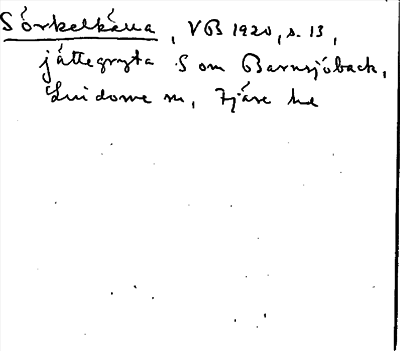 Sörkelkälla, VB 1920, s. 13,
jättegryta S om Barnsjöback,
Lindome sn, Fjäre hd